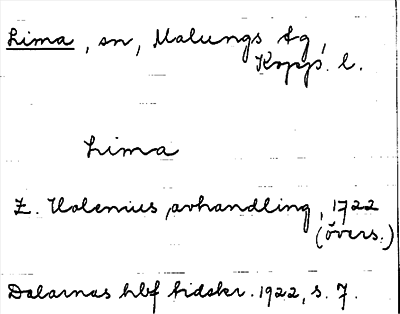 Lima, sn, Malungs tg,
Kopp. l.
Lima
E. Holenius, avhandling, 1722
(övers.)
Dalarnas hbf tidskr. 1922, s. 7.